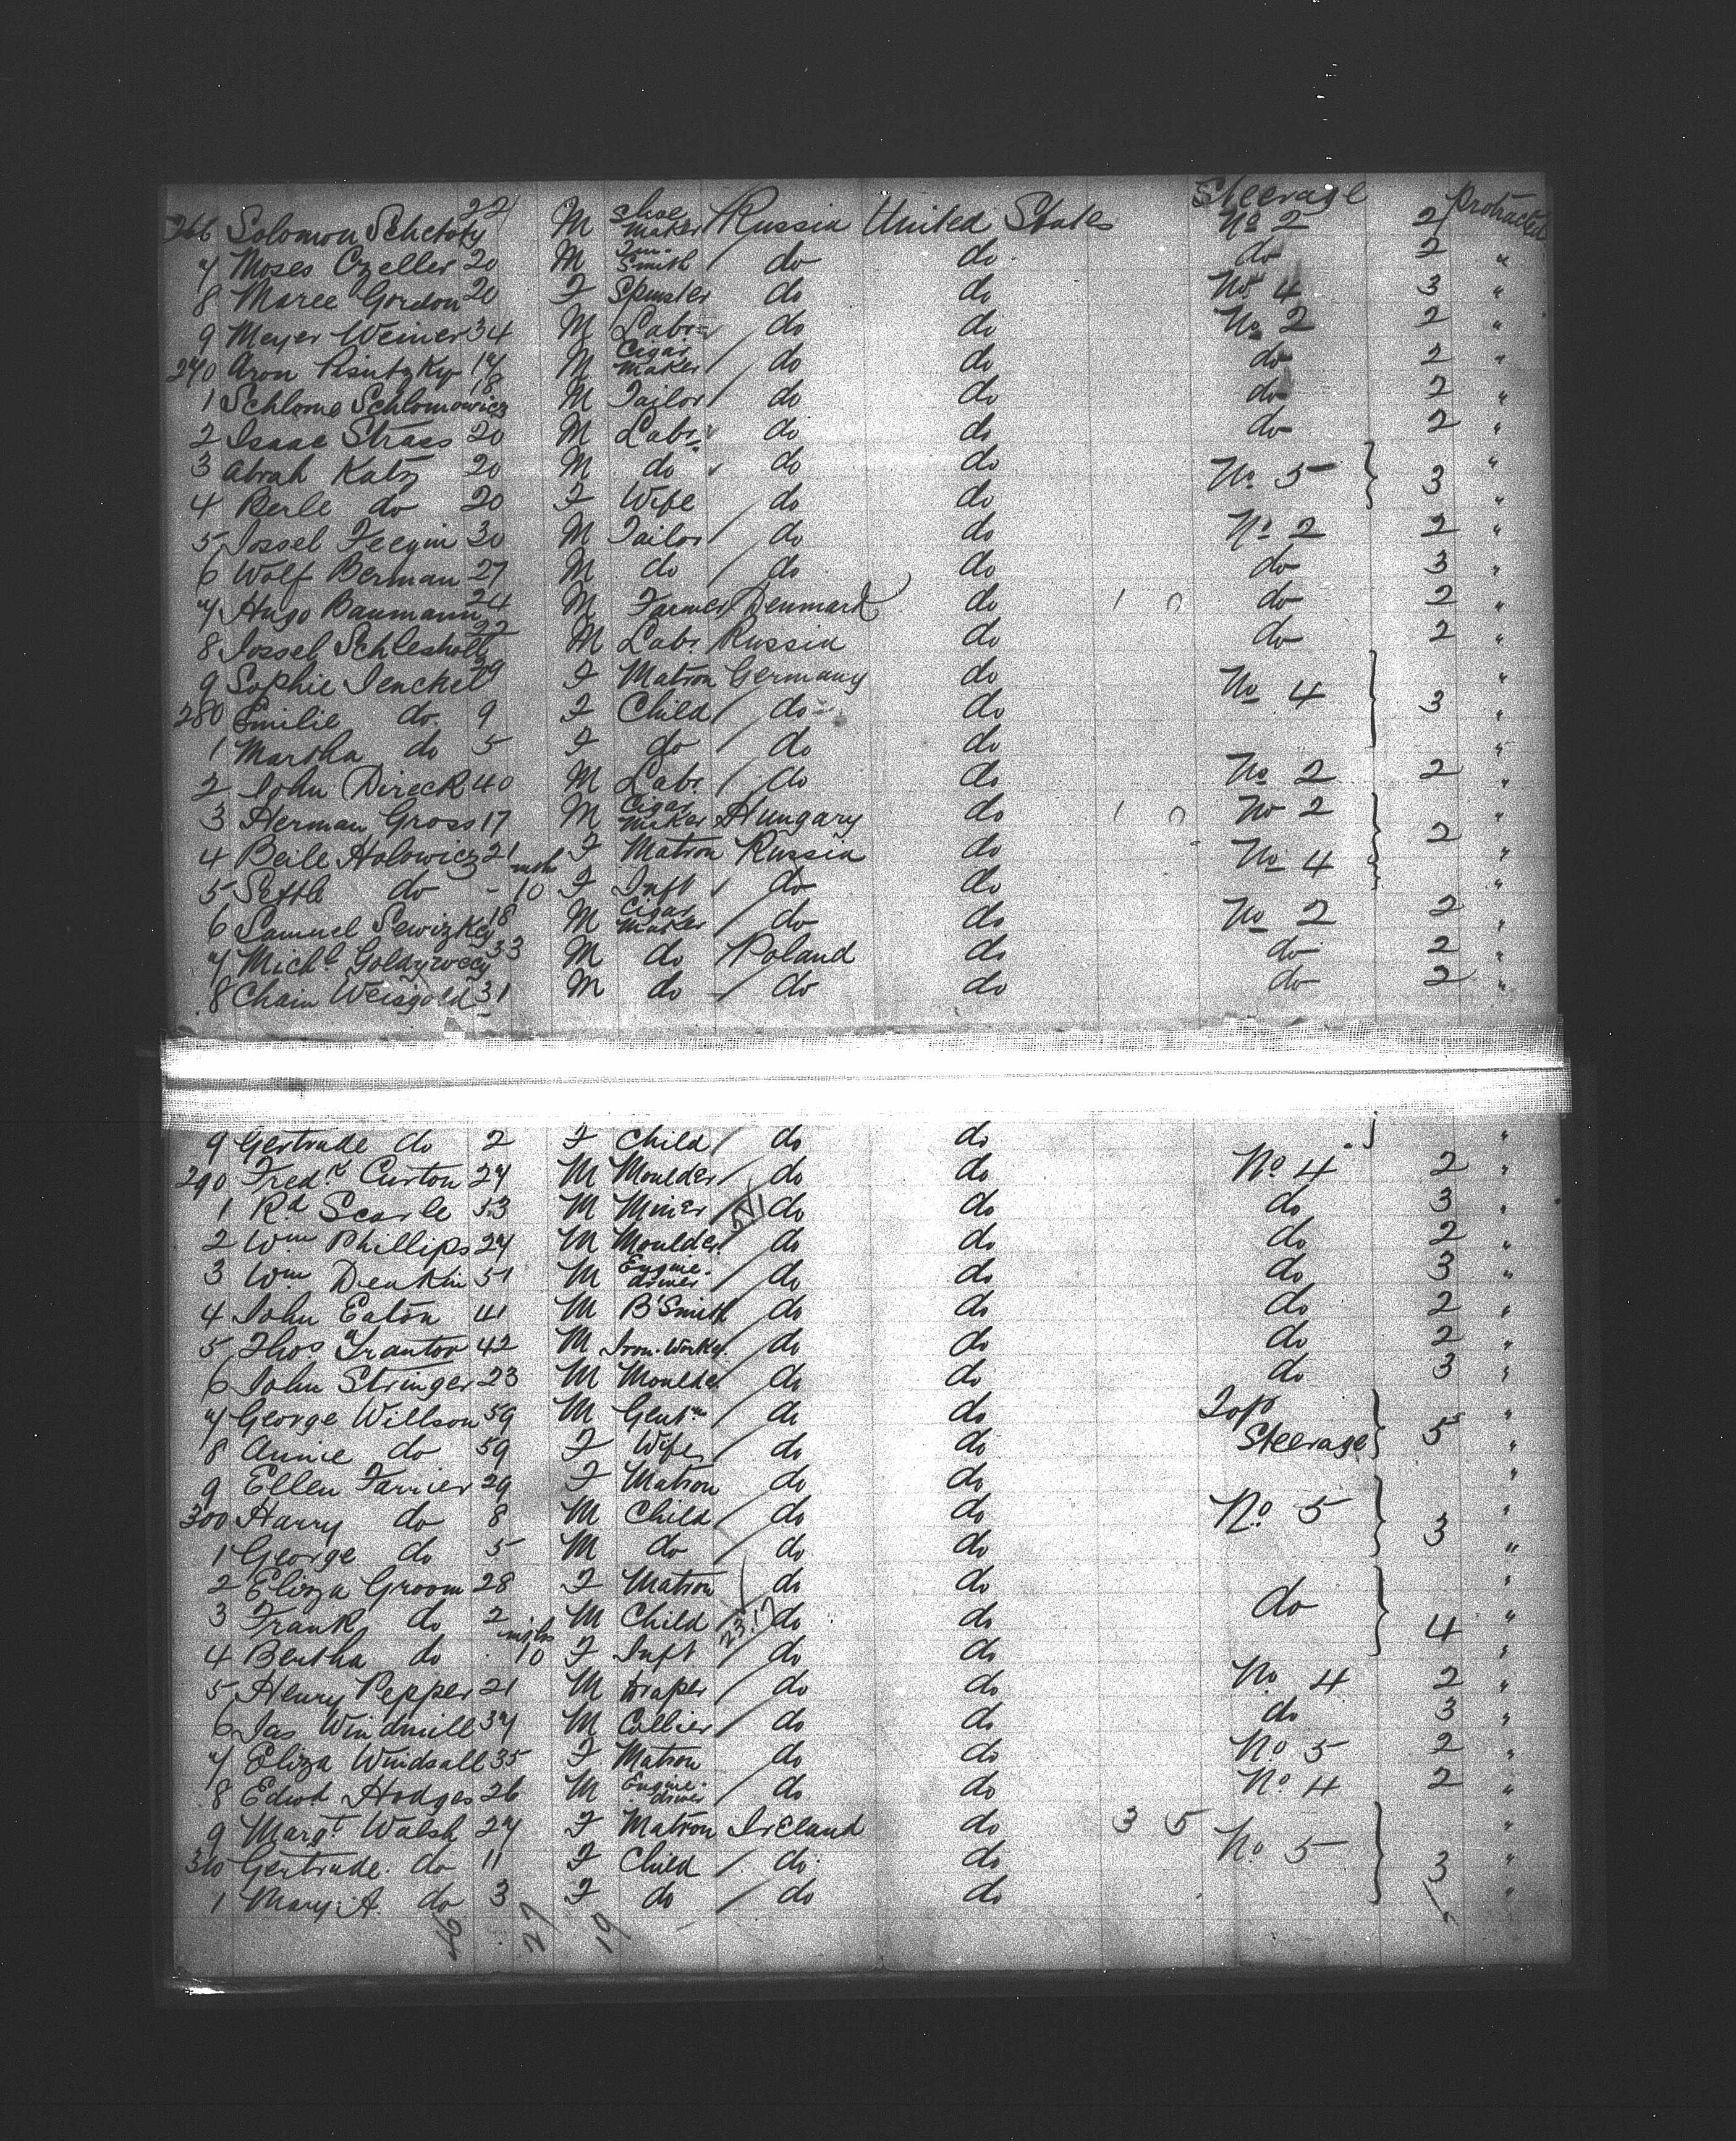 Steerage
266 Solomon Schetoty 22 M Shoe Maker Russia United States No 2 2 Protracted
7 Moses Czeller 20 M Tin Smith do do do 2 "
8 Maree Gordon 20 F Spinster do do No 4 3 "
9 Meyer Weiner 34 M Labr do do No 2 2 "
270 Aron Pisutzky 17 M Cigar Maker do do do 2 "
1 Schlome Schlomowicz 18 M Tailor do do do 2 "
2 Isaac Strass 20 M Labr do do do 2 "
3 Abrah Katz 20 M do do do No 5 3 "
4 Perle do 20 F Wife do do "
5 Jossel Feegin 30 M Tailor do do No 2 2 "
6 Wolf Berman 27 M do do do do 3 "
7 Hugo Baumann 24 M Farmer Denmark do 1 0 do 2 "
8 Jossel Schlesholtz 22 M Labr Russia do do 2 "
9 Sophie Jenckel 39 F Matron Germany do No 4 3 "
280 Emilie do 9 F Child do do "
1 Martha do 5 F do do do "
2 John Direck 40 M Labr do do No 2 2 "
3 Herman Gross 17 M Cigar Maker Hungary do 1 0 No 2 2 "
4 Beile Holowicz 21 F Matron Russia do No 4 "
5 Settl do - mth 10 F Inft do do "
6 Samuel Sewizkey 18 M Cigar Maker do do No 2 2 "
7 Michl 33 M do Poland do do 2 "
8 Chain Weisgold 31 M do do do do 2 "
9 Gertrude do 2 F Child do do "
290 Fredk Curton 27 M Moulder do do No 4 2 "
1 Rd Searle 53 M Miner do do do 3 "
2 Wm Phillips 27 M Moulder do do do 2 "
3 Wm Deakin 51 M Engine driver do do do 3 "
4 John Eaton 41 M B'Smith do do do 2 "
5 Thos Trantor 42 M Iron Worker do do do 2 "
6 John Stringer 23 M Moulder do do do 3 "
7 George Willson 59 M Gentn do do Top "
8 Annie do 59 F Wife do do Steerage 5 "
9 Ellen Farrier 29 F Matron do do "
300 Harry do 8 M Child do do No 5 3 "
1 George do 5 M do do do "
2 Eliza Groom 28 F Matron do do do 4 "
3 Frank do 2 M Child do do "
4 Bertha do mths 10 F Inft do do "
5 Henry Pepper 21 M Draper do do No 4 2 "
6 Jas Windmill 37 M Collier do do do 3 "
7 Eliza Windsall 35 F Matron do do No 5 2 "
8 Edwd Hodges 26 M Engine driver do do No 4 2 "
9 Margt Walsh 27 F Matron Ireland do 3 5 No 5 3 "
310 Gertrude do 11 F Child do do "
1 Mary A. do 3 F do do do "
27 19